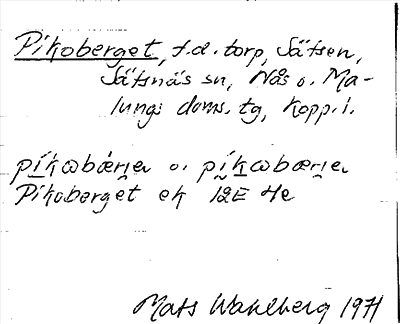 Pikoberget, f.d. torp, Sätsen,
Sätsnäs sn, Nås o. Ma-
lungs doms. tg, Kopp. l.
píkωbærjeṇ o. píkωbærjeṇ
Pikoberget ek 12E 4e
Mats Wahlberg 1971